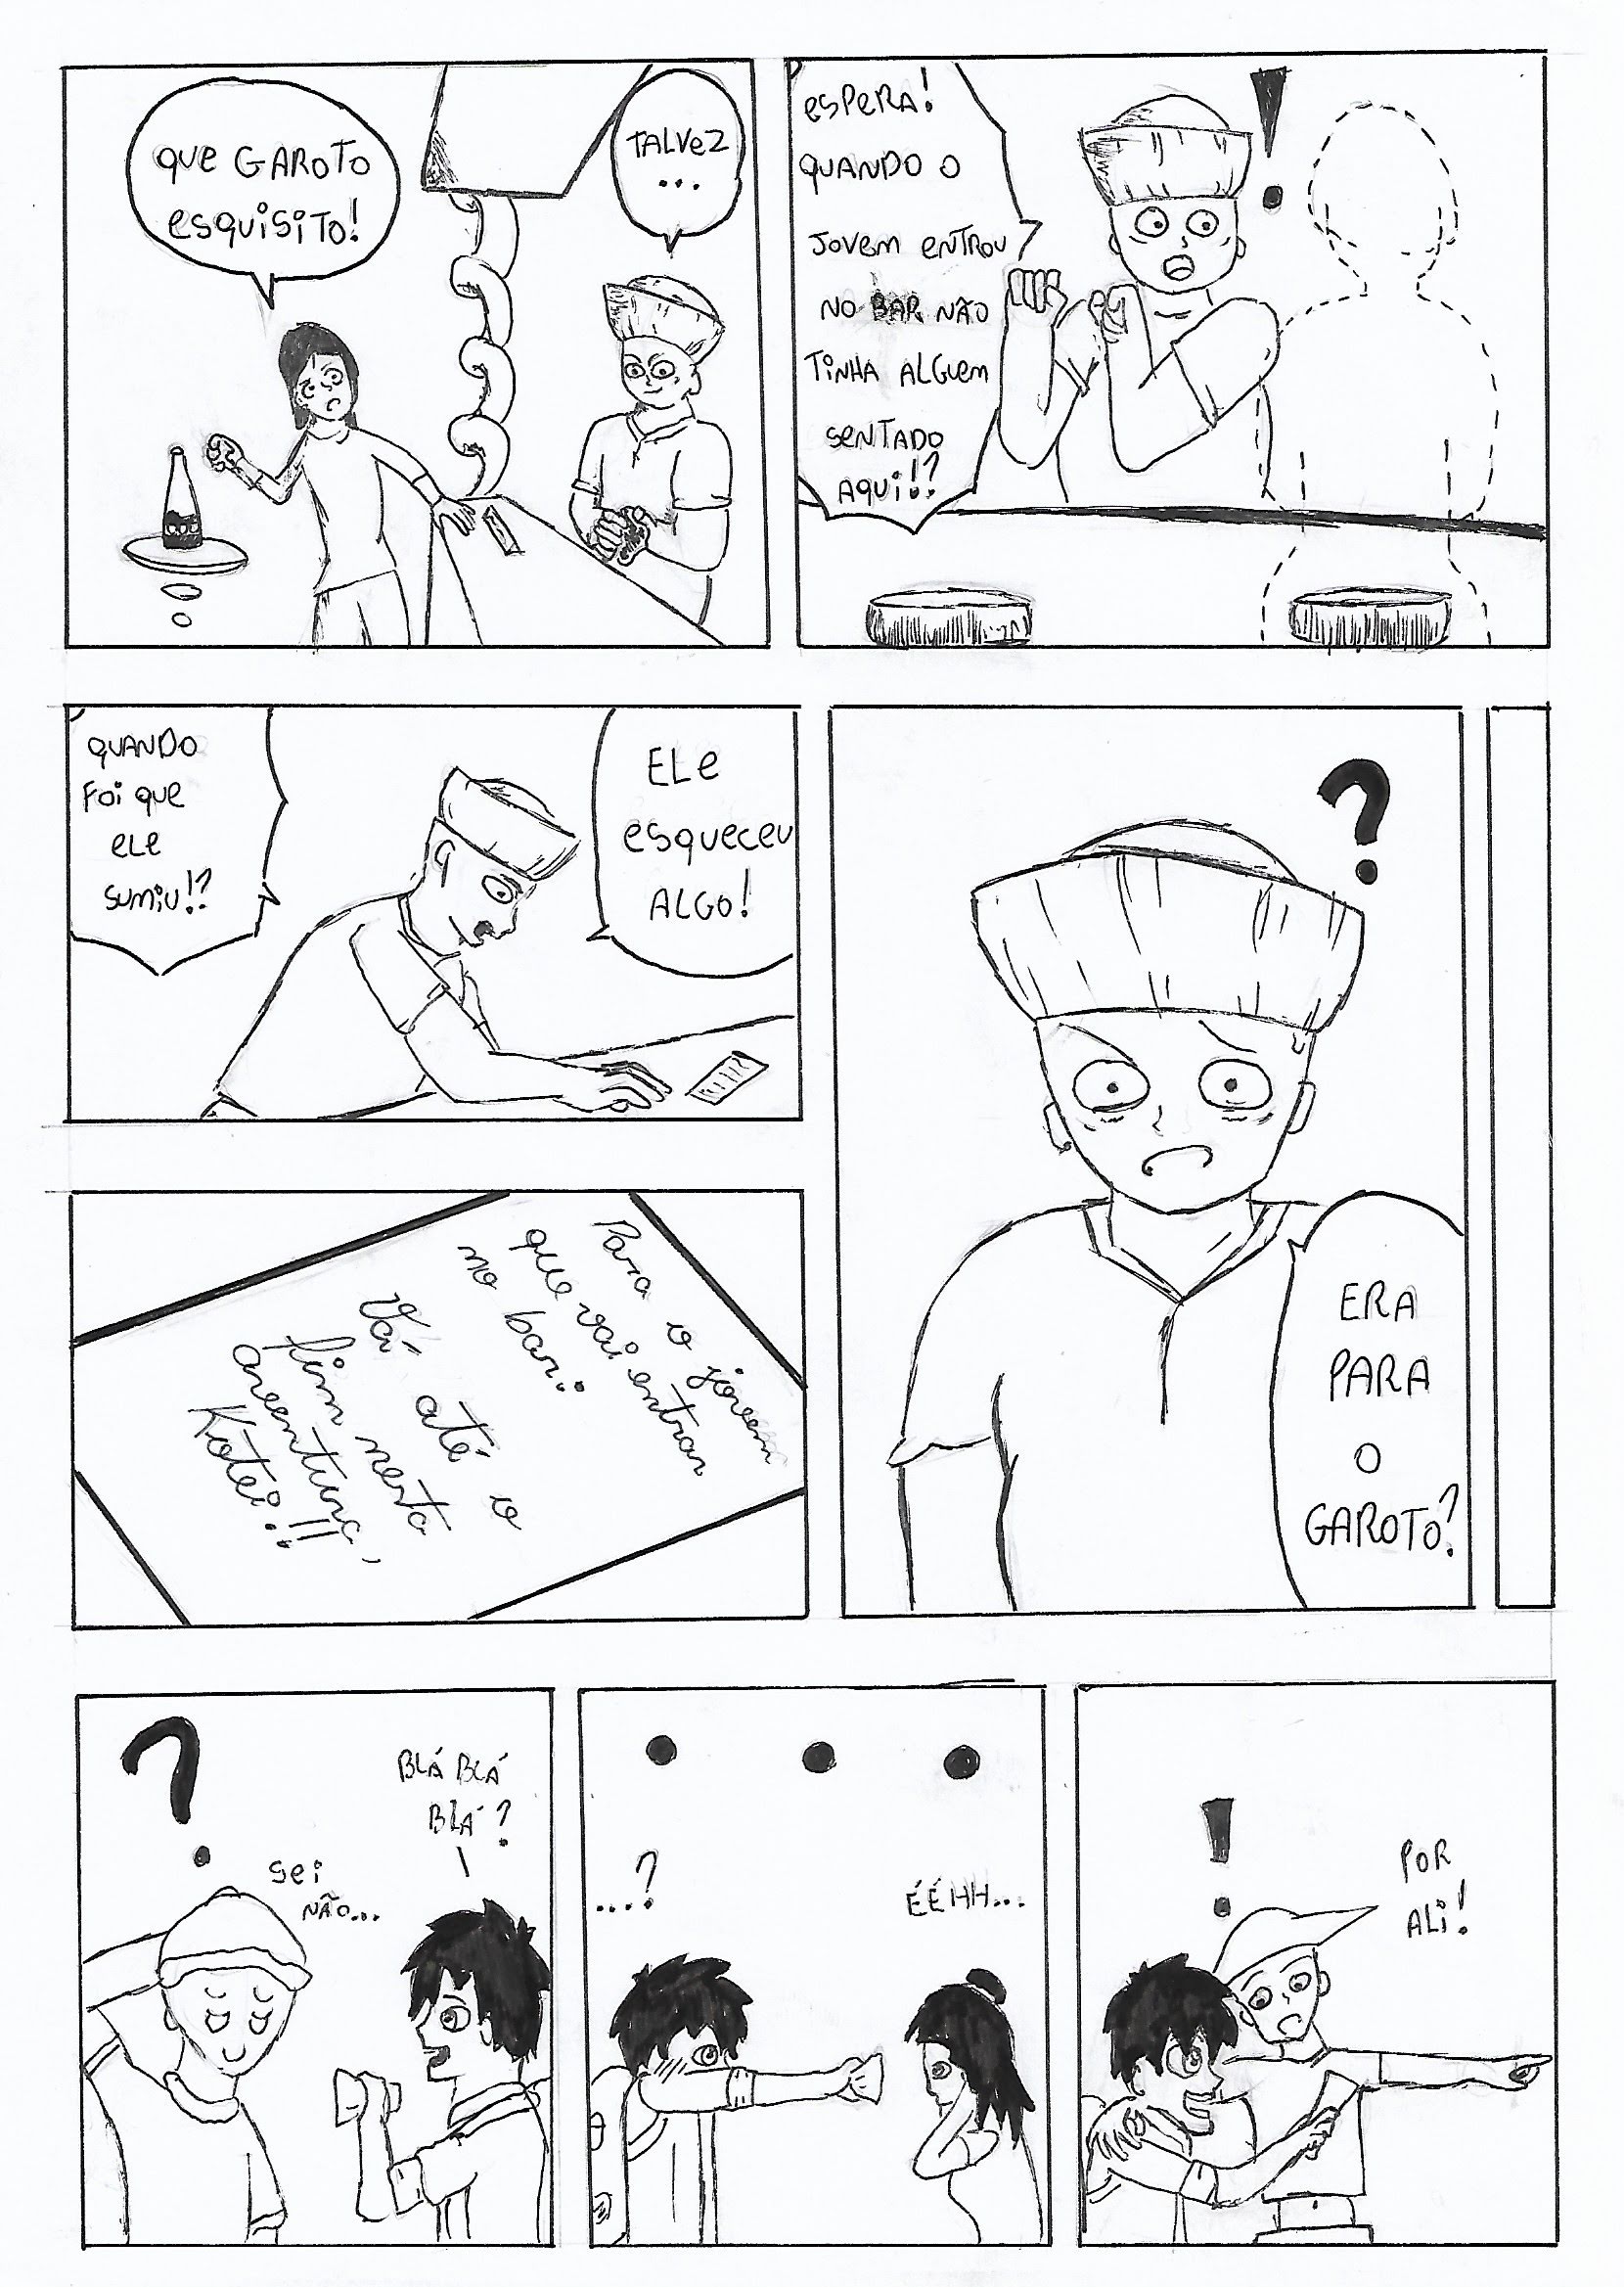 QUE GAROTO
ESQUISITO!
TALVEZ
...
ESPERA!
QUANDO O
JOVEM ENTROU
NO BAR NÃO
TINHA ALGUEM
SENTADO
AQUI!?
!
QUANDO
FOI QUE
ELE
SUMIU!?
ELE
ESQUECEU
ALGO!
Para o jovem
que vai entrar
no bar:
Vá até o
fim nesta
aventura,
Kotei!!
?
ERA
PARA
O
GAROTO?
?
BLÁ BLÁ
BLÁ?
SEI
NÃO...
...
...?
ÉÉHH...
!
POR
ALI!